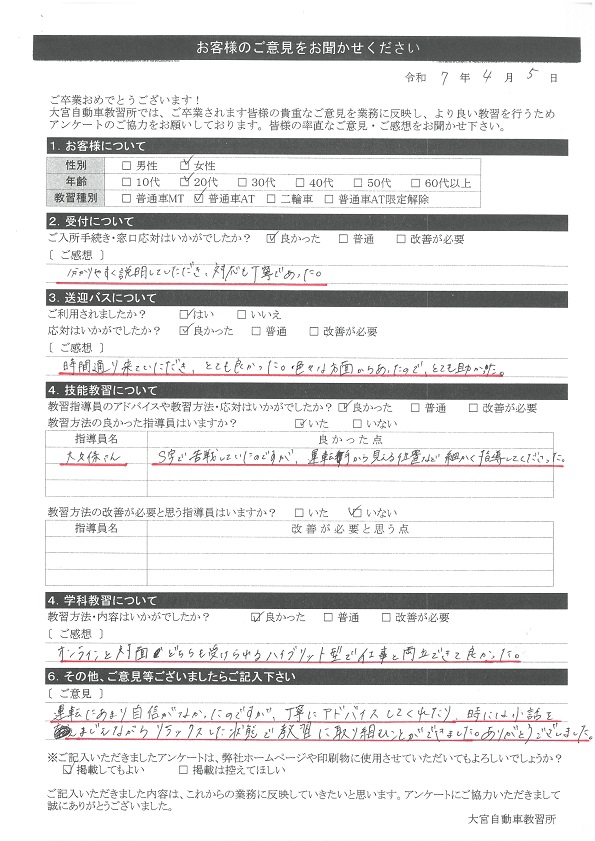 お客様のご意見をお聞かせください
令和 7 年 4 月 5 日
ご卒業おめでとうございます！
大宮自動車教習所では、ご卒業されます皆様の貴重なご意見を業務に反映し、より良い教習を行うため
アンケートのご協力をお願いしております。皆様の率直なご意見・ご感想をお聞かせ下さい。
1. お客様について
性別 □ 男性 ☑ 女性
年齢 □ 10代 ☑ 20代 □ 30代 □ 40代 □ 50代 □ 60代以上
教習種別 □ 普通車MT ☑ 普通車AT □ 二輪車 □ 普通車AT限定解除
2. 受付について
ご入所手続き・窓口応対はいかがでしたか？ ☑ 良かった □ 普通 □ 改善が必要
〔 ご感想 〕
分かりやすく説明していただき、対応も丁寧であった。
3. 送迎バスについて
ご利用されましたか？ ☑ はい □ いいえ
応対はいかがでしたか？ ☑ 良かった □ 普通 □ 改善が必要
〔 ご感想 〕
時間通り来ていただき、とても良かった。色々な方面からあったので、とても助かった。
4. 技能教習について
教習指導員のアドバイスや教習方法・応対はいかがでしたか？ ☑ 良かった □ 普通 □ 改善が必要
教習方法の良かった指導員はいますか？ ☑ いた □ いない
指導員名 良かった点
大久保さん S字で苦戦していたのですが、運転席から見える位置など細かく指導してくださった。
教習方法の改善が必要と思う指導員はいますか？ □ いた ☑ いない
指導員名 改善が必要と思う点
4. 学科教習について
教習方法・内容はいかがでしたか？ ☑ 良かった □ 普通 □ 改善が必要
〔 ご感想 〕
オンラインと対面どちらも受けられるハイブリット型で仕事と両立できて良かった。
6. その他、ご意見等ございましたらご記入下さい
〔 ご意見 〕
運転にあまり自信がなかったのですが、丁寧にアドバイスしてくれたり、時には小話を
まじえながらリラックスした状態で教習に取り組むことができました。ありがとうございました。
※ご記入いただきましたアンケートは、弊社ホームページや印刷物に使用させていただいてもよろしいでしょうか？
☑ 掲載してもよい □ 掲載は控えてほしい
ご記入いただきました内容は、これからの業務に反映していきたいと思います。アンケートにご協力いただきまして
誠にありがとうございました。
大宮自動車教習所